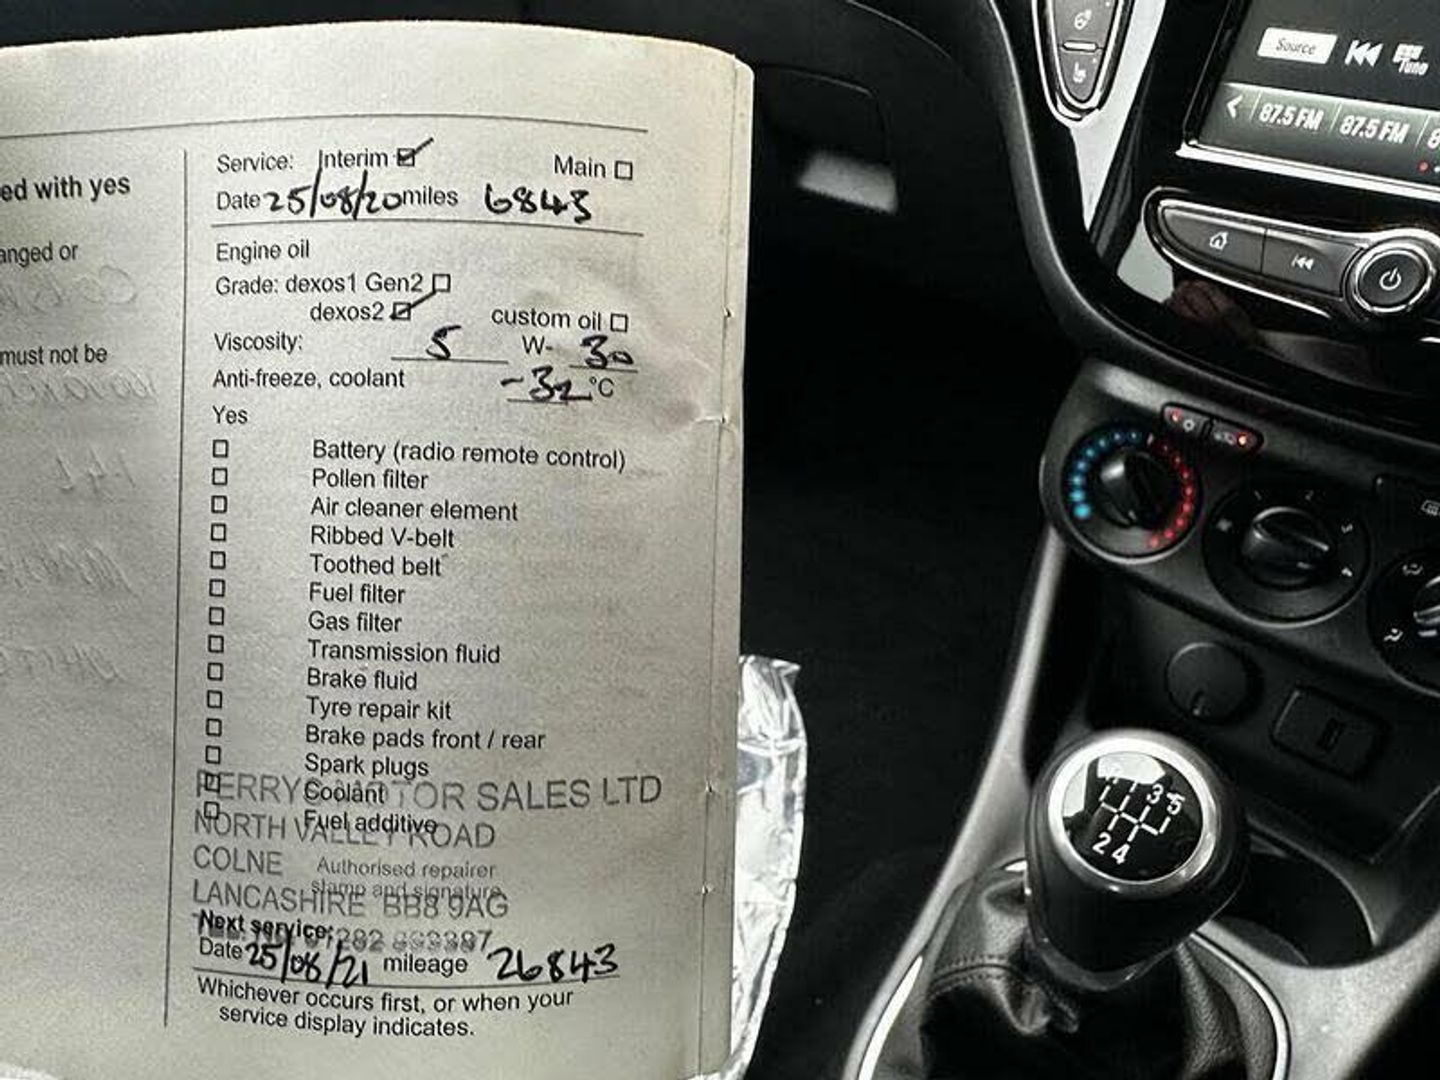 ed with yes
anged or
must not be
Service: Interim Main
Date 25/08/20 miles 6843
Engine oil
Grade: dexos1 Gen2
dexos2 custom oil
Viscosity: 5 W- 30
Anti-freeze, coolant -32 °C
Yes
Battery (radio remote control)
Pollen filter
Air cleaner element
Ribbed V-belt
Toothed belt
Fuel filter
Gas filter
Transmission fluid
Brake fluid
Tyre repair kit
Brake pads front / rear
Spark plugs
PERRYS MOTOR SALES LTD
Coolant
Fuel additive
NORTH VALLEY ROAD
COLNE
Authorised repairer
stamp and signature
LANCASHIRE BB8 9AG
Next service:
Date 25/08/21 mileage 26843
Whichever occurs first, or when your
service display indicates.
Source
Tune
87.5 FM 87.5 FM 8
1 2 3 4
3 5
2 4